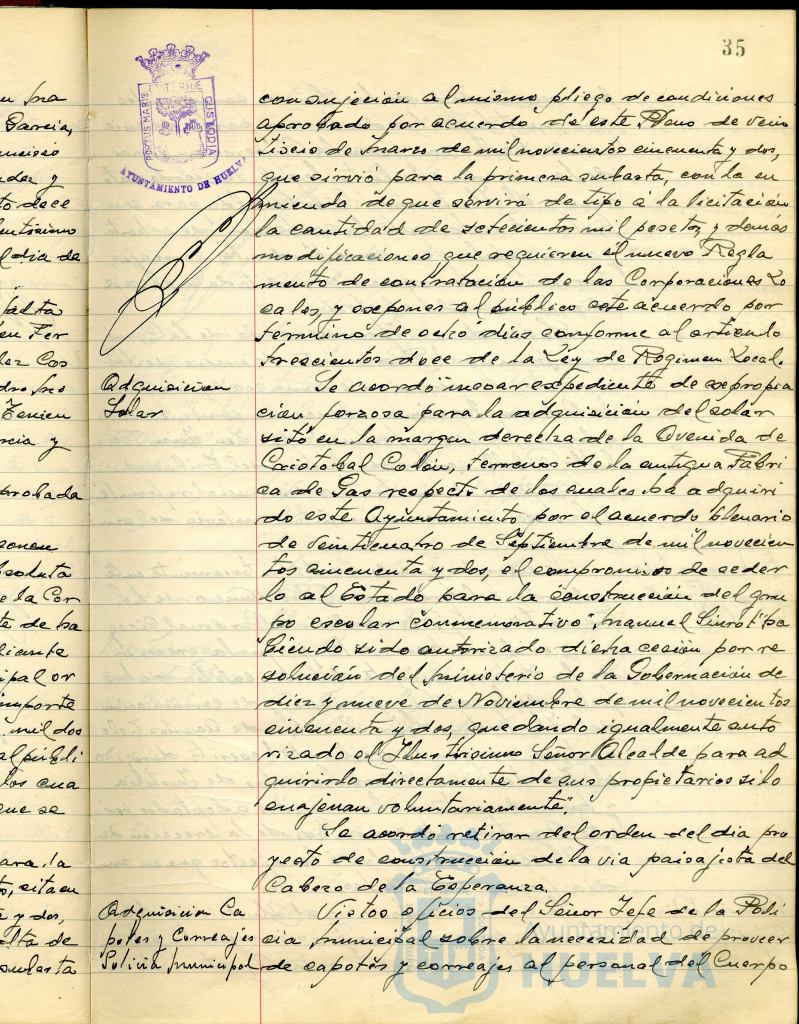 35
PORTUS MARIS
ET TERRÆ
CUSTODIA
AYUNTAMIENTO DE HUELVA
con sujeción al mismo pliego de condiciones
aprobado por acuerdo de este Pleno de vein
tiseis de Marzo de mil novecientos cincuenta y dos,
que sirvió para la primera subasta, con la en
mienda de que servirá de tipo á la licitación
la cantidad de setecientos mil pesetas y demás
modificaciones que requieren el nuevo Regla
mento de contratación de las Corporaciones Lo
cales, y exponer al público este acuerdo por
término de ocho dias conforme al articulo
trescientos doce de la Ley de Régimen Local.
Adquisición
Solar
Se acordó "incoar expediente de expropia
ción forzosa para la adquisición del solar
sito en la margen derecha de la Avenida de
Cristobal Colón, terrenos de la antigua Fabri
ca de Gas respecto de los cuales ha adquiri
do este Ayuntamiento por el acuerdo plenario
de veinticuatro de Septiembre de mil novecien
tos cincuenta y dos, el compromiso de ceder
lo al Estado para la construcción del gru
po escolar conmemorativo "Manuel Siurot" ha
biendo sido autorizado dicha cesión por re
solución del Ministerio de la Gobernación de
diez y nueve de Noviembre de mil novecientos
cincuenta y dos, quedando igualmente auto
rizado el Ilustrisimo Señor Alcalde para ad
quirirlo directamente de sus propietarios si lo
enajenan voluntariamente".
Se acordo retirar del orden del dia pro
yecto de construcción de la via paisajista del
Cabezo de la Esperanza.
Adquisicion Ca
potes y Correajes
Policia Municipal
Vistos oficios del Señor Jefe de la Poli
cia Municipal sobre la necesidad de proveer
de capotes y correajes al personal del Cuerpo
Ayuntamiento de
HUELVA
Garcia,
ncisco
dez y
to dece
lentisimo
l dia de
falta
en Fer
dez Cos
Tenien
rcia y
probada
ponen
bsoluta
e la Cor
te de ha
diante
ipal or
importe
mil dos
al públi
los cua
que se
para la
sita en
a y dos,
lta de
subasta